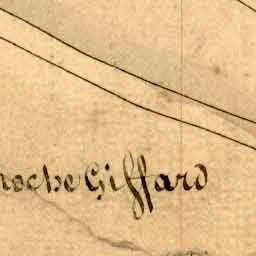 roche Giffard